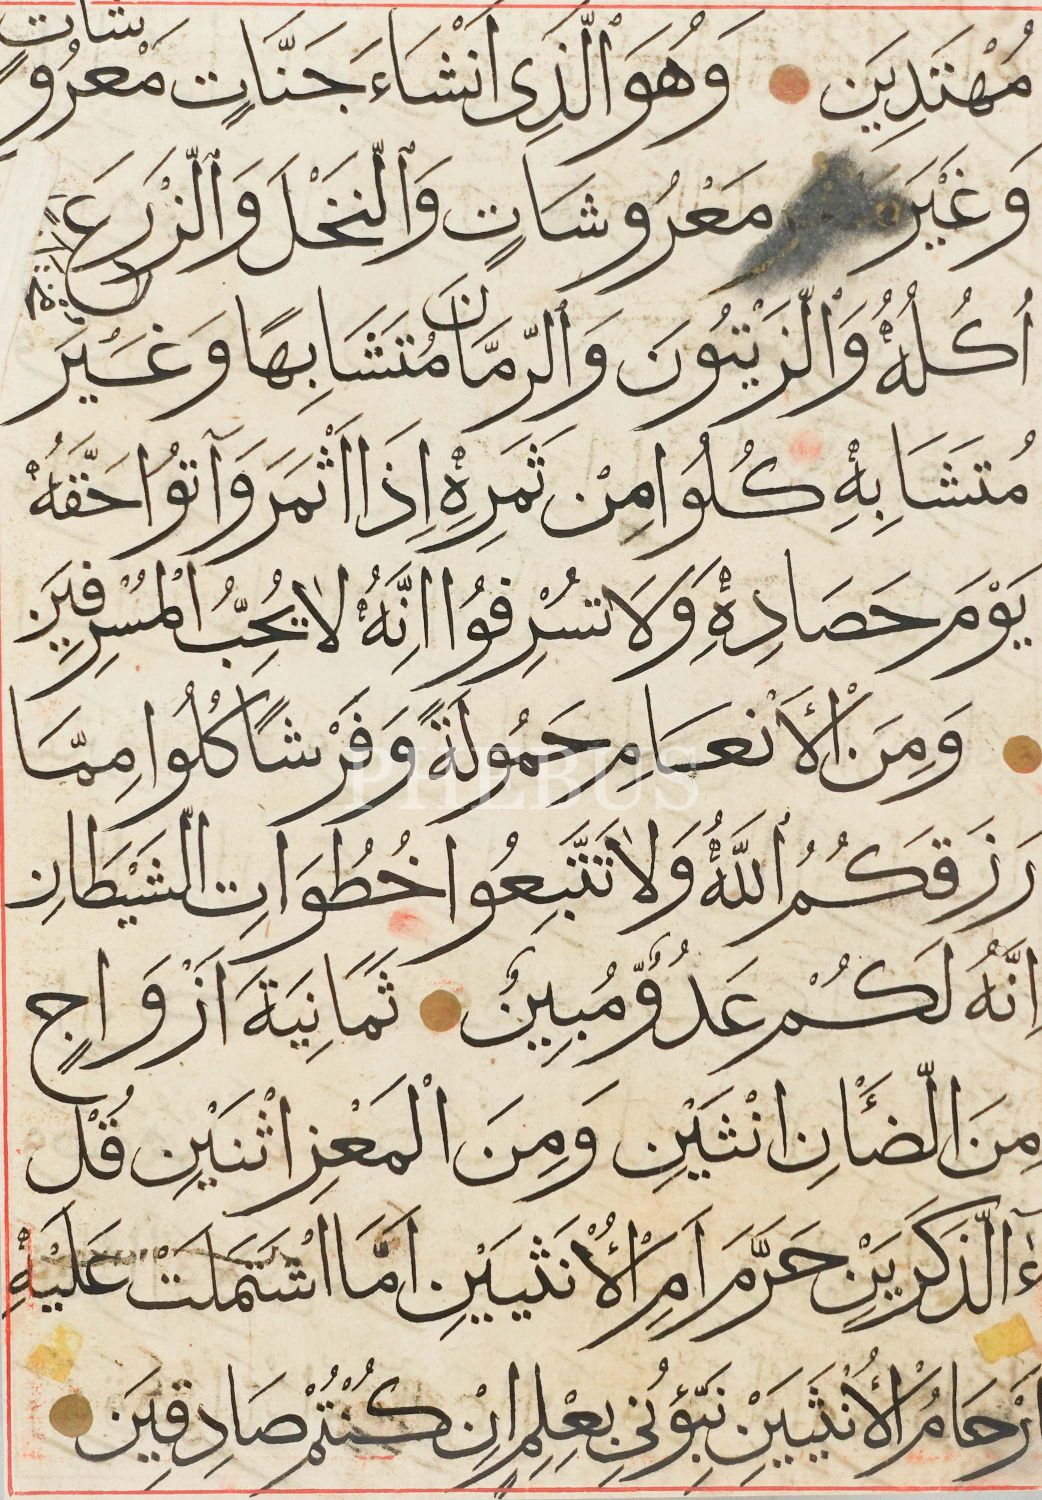 مُهْتَدِينَ وَهُوَ ٱلَّذِى اَنْشَاءَ جَنَّاتٍ مَعْرُو
شَاتٍ
وَغَيْرَ مَعْرُوشَاتٍ وَٱلنَّخْلَ وَٱلزَّرْعَ
اُكُلُهُ وَٱلزَّيْتُونَ وَٱلرُّمَّانَ مُتَشَابِهًا وَغَيْرَ
مُتَشَابِهٍ كُلُوا مِنْ ثَمَرِهِ اِذَا اَثْمَرَ وَآتُوا حَقَّهُ
يَوْمَ حَصَادِهِ وَلَا تُسْرِفُوا اِنَّهُ لَا يُحِبُّ الْمُسْرِفِينَ
وَمِنَ الْأَنْعَامِ حَمُولَةً وَفَرْشًا كُلُوا مِمَّا
رَزَقَكُمُ اللَّهُ وَلَا تَتَّبِعُوا خُطُوَاتِ الشَّيْطَانِ
اِنَّهُ لَكُمْ عَدُوٌّ مُبِينٌ ثَمَانِيَةَ اَزْوَاجٍ
مِنَ الضَّأْنِ اثْنَيْنِ وَمِنَ الْمَعْزِ اثْنَيْنِ قُلْ
ءٰالذَّكَرَيْنِ حَرَّمَ اَمِ الْأُنْثَيَيْنِ اَمَّا اشْتَمَلَتْ عَلَيْهِ
اَرْحَامُ الْأُنْثَيَيْنِ نَبِّؤُنِى بِعِلْمٍ اِنْ كُنْتُمْ صَادِقِينَ
PHEBUS